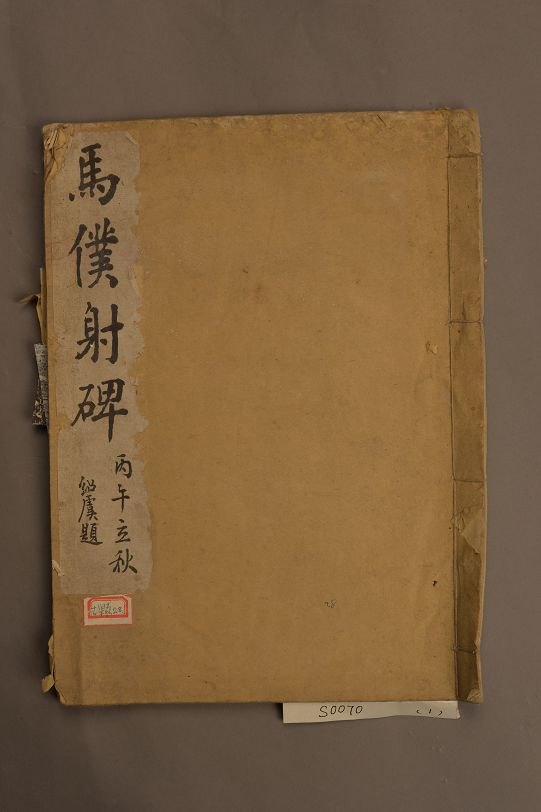 馬僕射碑
丙午立秋
紹虞題
28
S0070 (1)